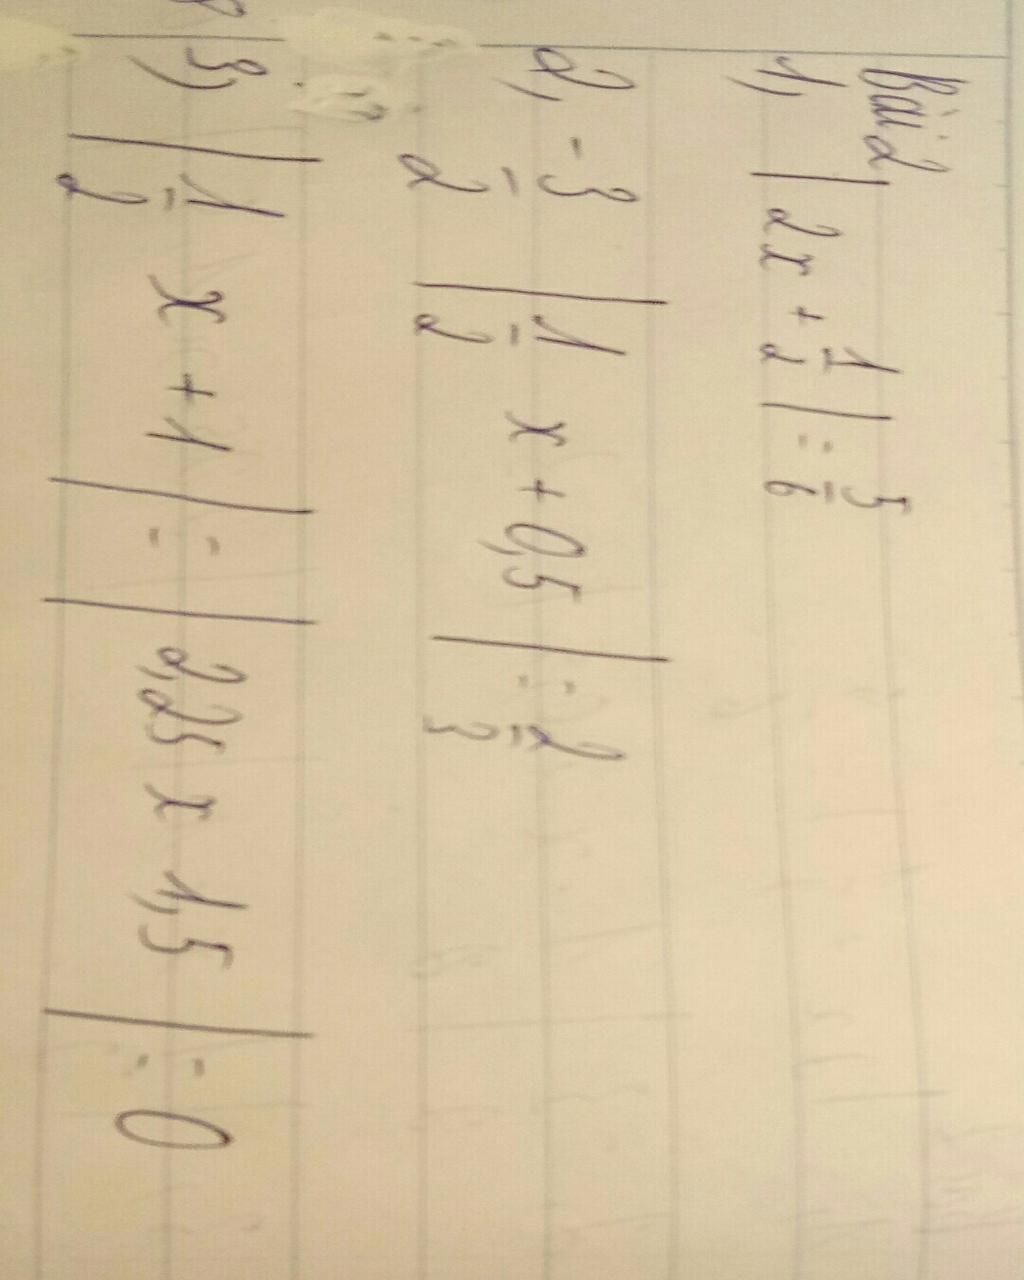 Bài 2
1, | 2x + 1/2 | = 5/6
2, -3/2 | 1/2 x + 0,5 | = 2/3
3, | 1/2 x + 1 | = | 2,25 x 1,5 | = 0